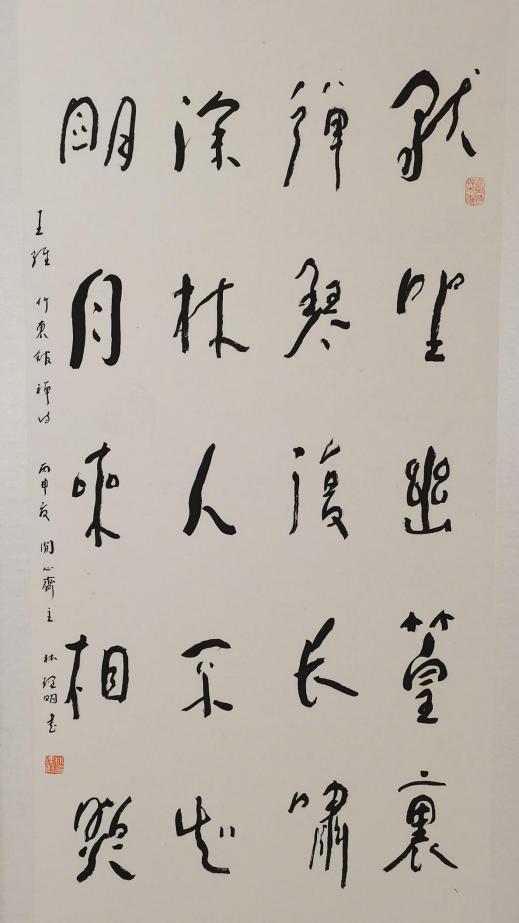 獨坐幽篁裏
彈琴復長嘯
深林人不知
明月來相照
王維 竹裏館 禪詩 丙申夏 閒心齋主 林明書